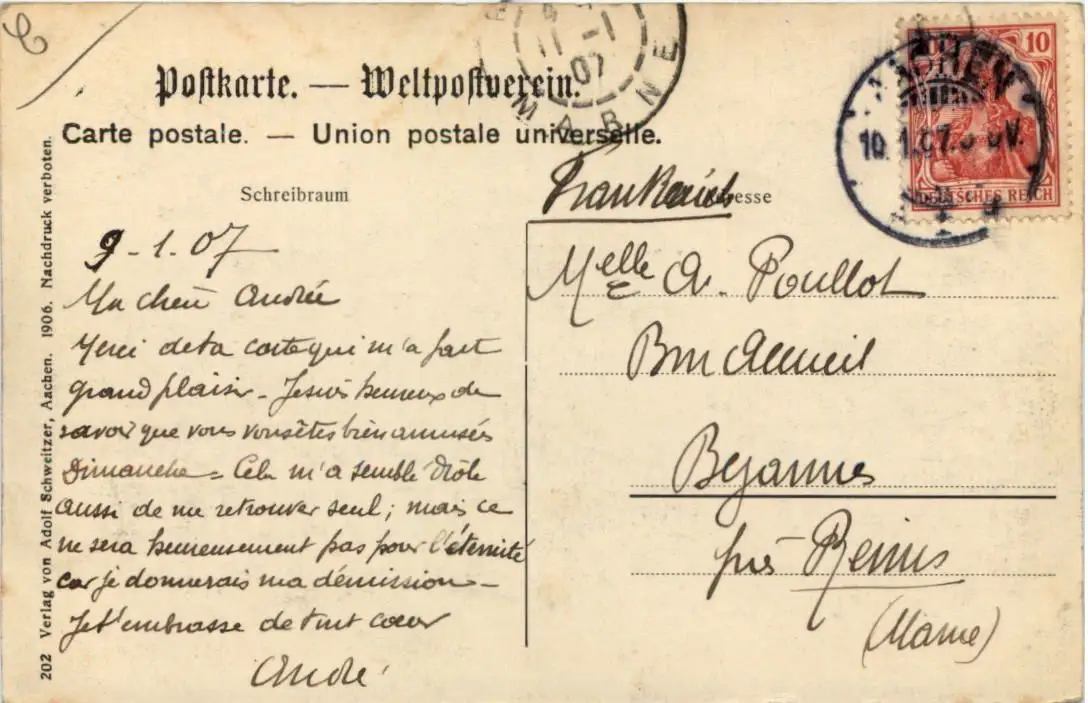 Postkarte. — Weltpostverein.
Carte postale. — Union postale universelle.
11 -1
07
MARNE
10
AACHEN
10.1.07.
1
DEUTSCHES REICH
Schreibraum
Adresse
202 Verlag von Adolf Schweitzer, Aachen. 1906. Nachdruck verboten.
9-1.07
Ma chère Andrée
Merci de ta carte qui m'a fait
grand plaisir - Je suis heureux de
savoir que vous vous êtes bien amusés
Dimanche - Cela m'a semblé drôle
aussi de me retrouver seul; mais ce
ne sera heureusement pas pour l'éternité
car je donnerais ma démission -
Je t'embrasse de tout coeur
André
Frankreich
Melle A. Poullot
Bon Accueil
Bezannes
près Reims
(Marne)